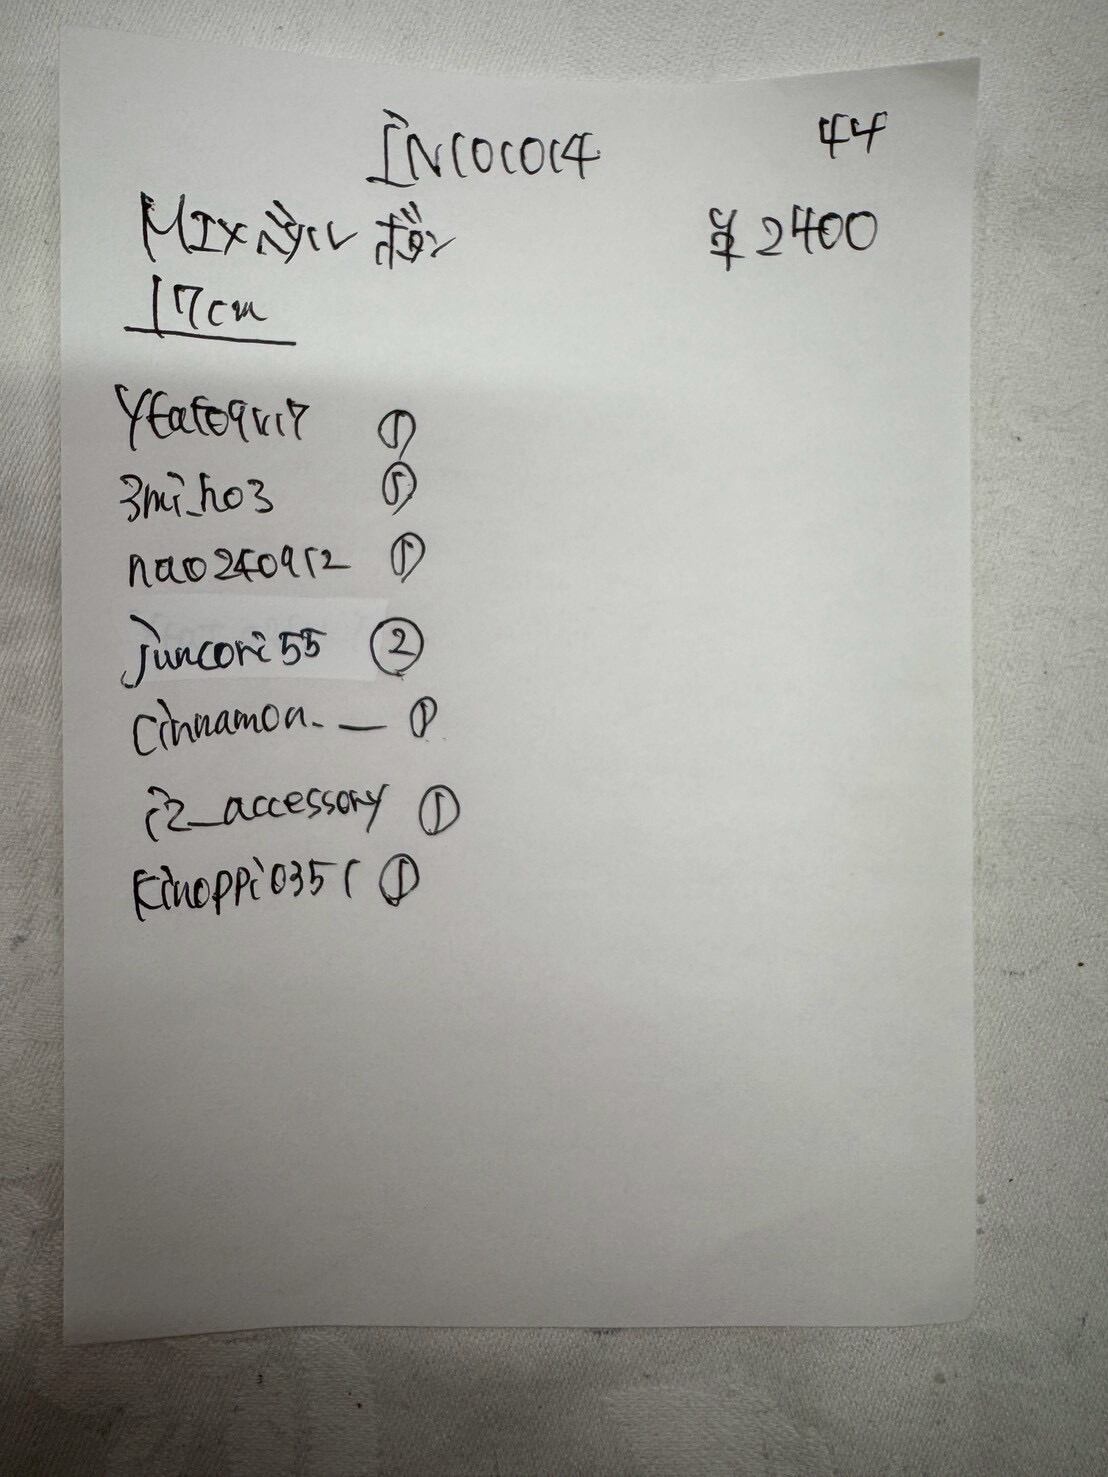 IN101014 44
MIXパール ボタン ¥2400
17cm
3mi_ho3 ①
nao240912 ①
juncori55 ②
cinnamon.__ ①
i2_accessory ①
kinoppi0351 ①